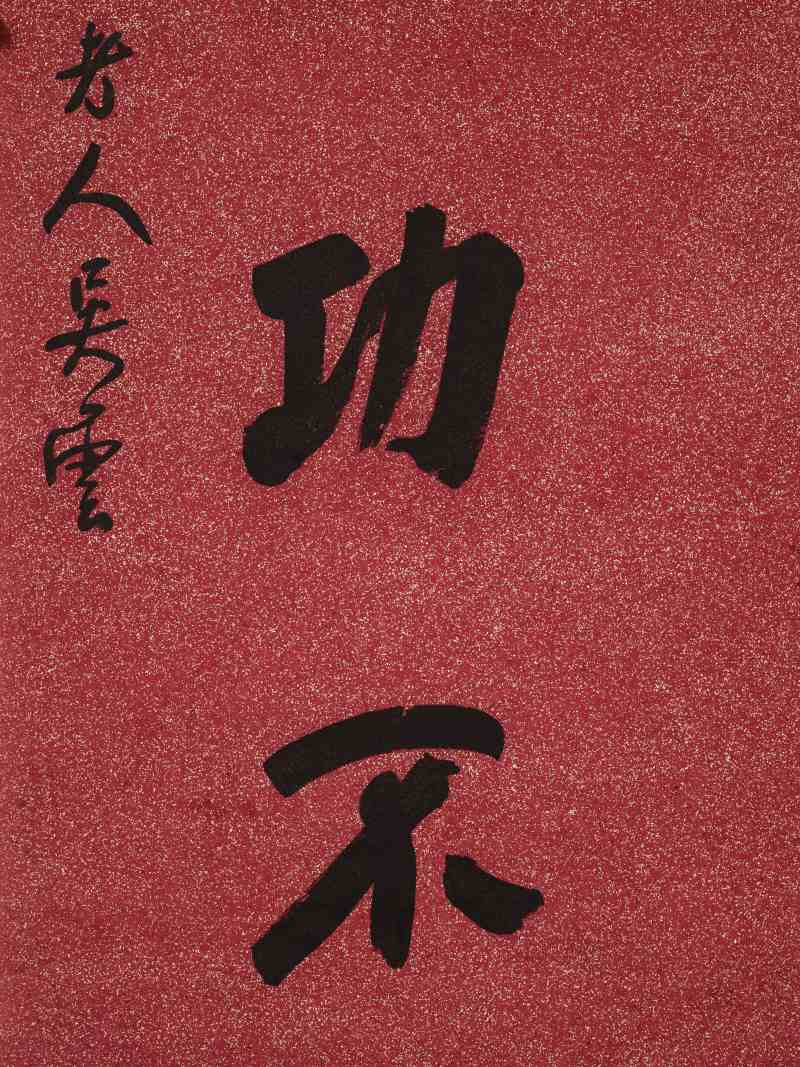 功不
老人吳雲